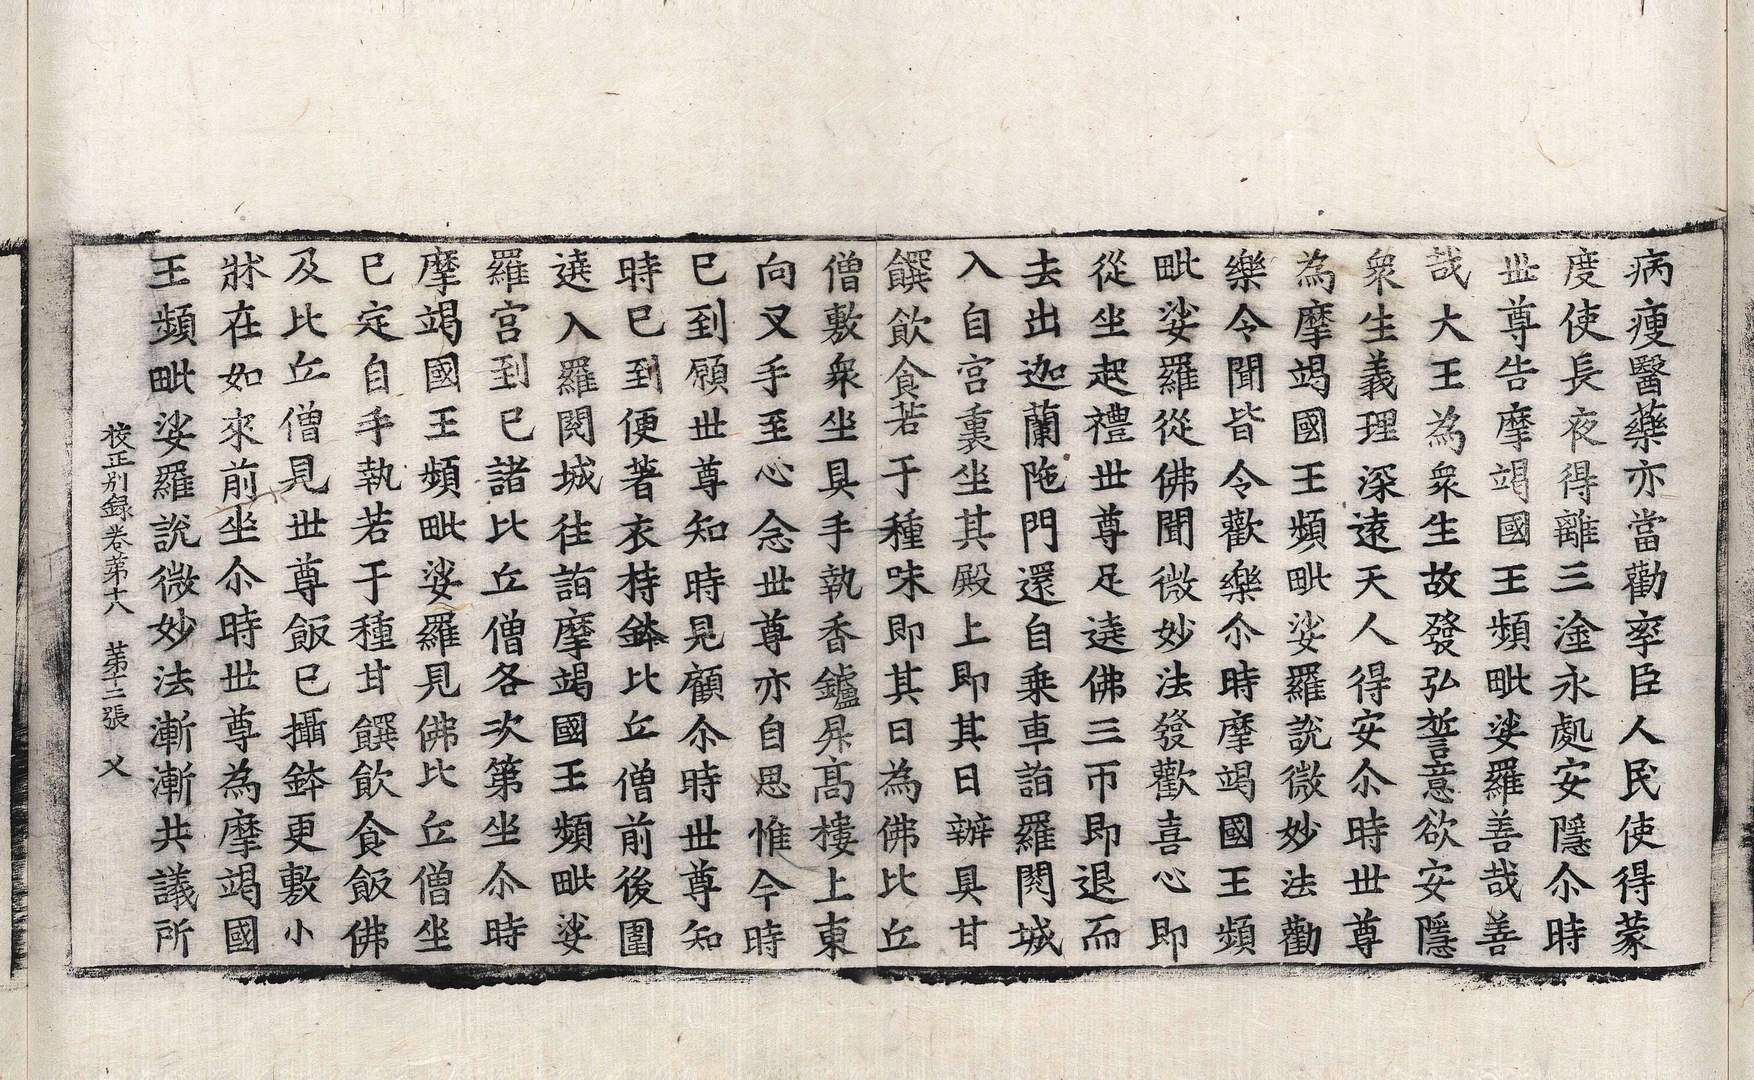 病瘦醫藥亦當勸率臣人民使得蒙
度使長夜得離三塗永處安隱尒時
丗尊告摩竭國王頻毗娑羅善哉善
哉大王為衆生故發弘誓意欲安隱
衆生義理深遠天人得安尒時丗尊
為摩竭國王頻毗娑羅說微妙法勸
樂令聞皆令歡樂尒時摩竭國王頻
毗娑羅從佛聞微妙法發歡喜心即
從坐起禮丗尊足遶佛三帀即退而
去出迦蘭陁門還自乗車詣羅閱城
入自宮裏坐其殿上即其日辦具甘
饌飲食若干種味即其日為佛比丘
僧敷衆坐具手執香鑪昇髙樓上東
向叉手至心念丗尊亦自思惟今時
已到願丗尊知時見顧尒時丗尊知
時已到便著衣持鉢比丘僧前後圍
遶入羅閱城往詣摩竭國王頻毗娑
羅宮到已諸比丘僧各次第坐尒時
摩竭國王頻毗娑羅見佛比丘僧坐
已定自手執若干種甘饌飲食飯佛
及比丘僧見丗尊飯已攝鉢更敷小
牀在如來前坐尒時丗尊為摩竭國
王頻毗娑羅說微妙法漸漸共議所
校正別録卷苐十八　苐十二張　乂